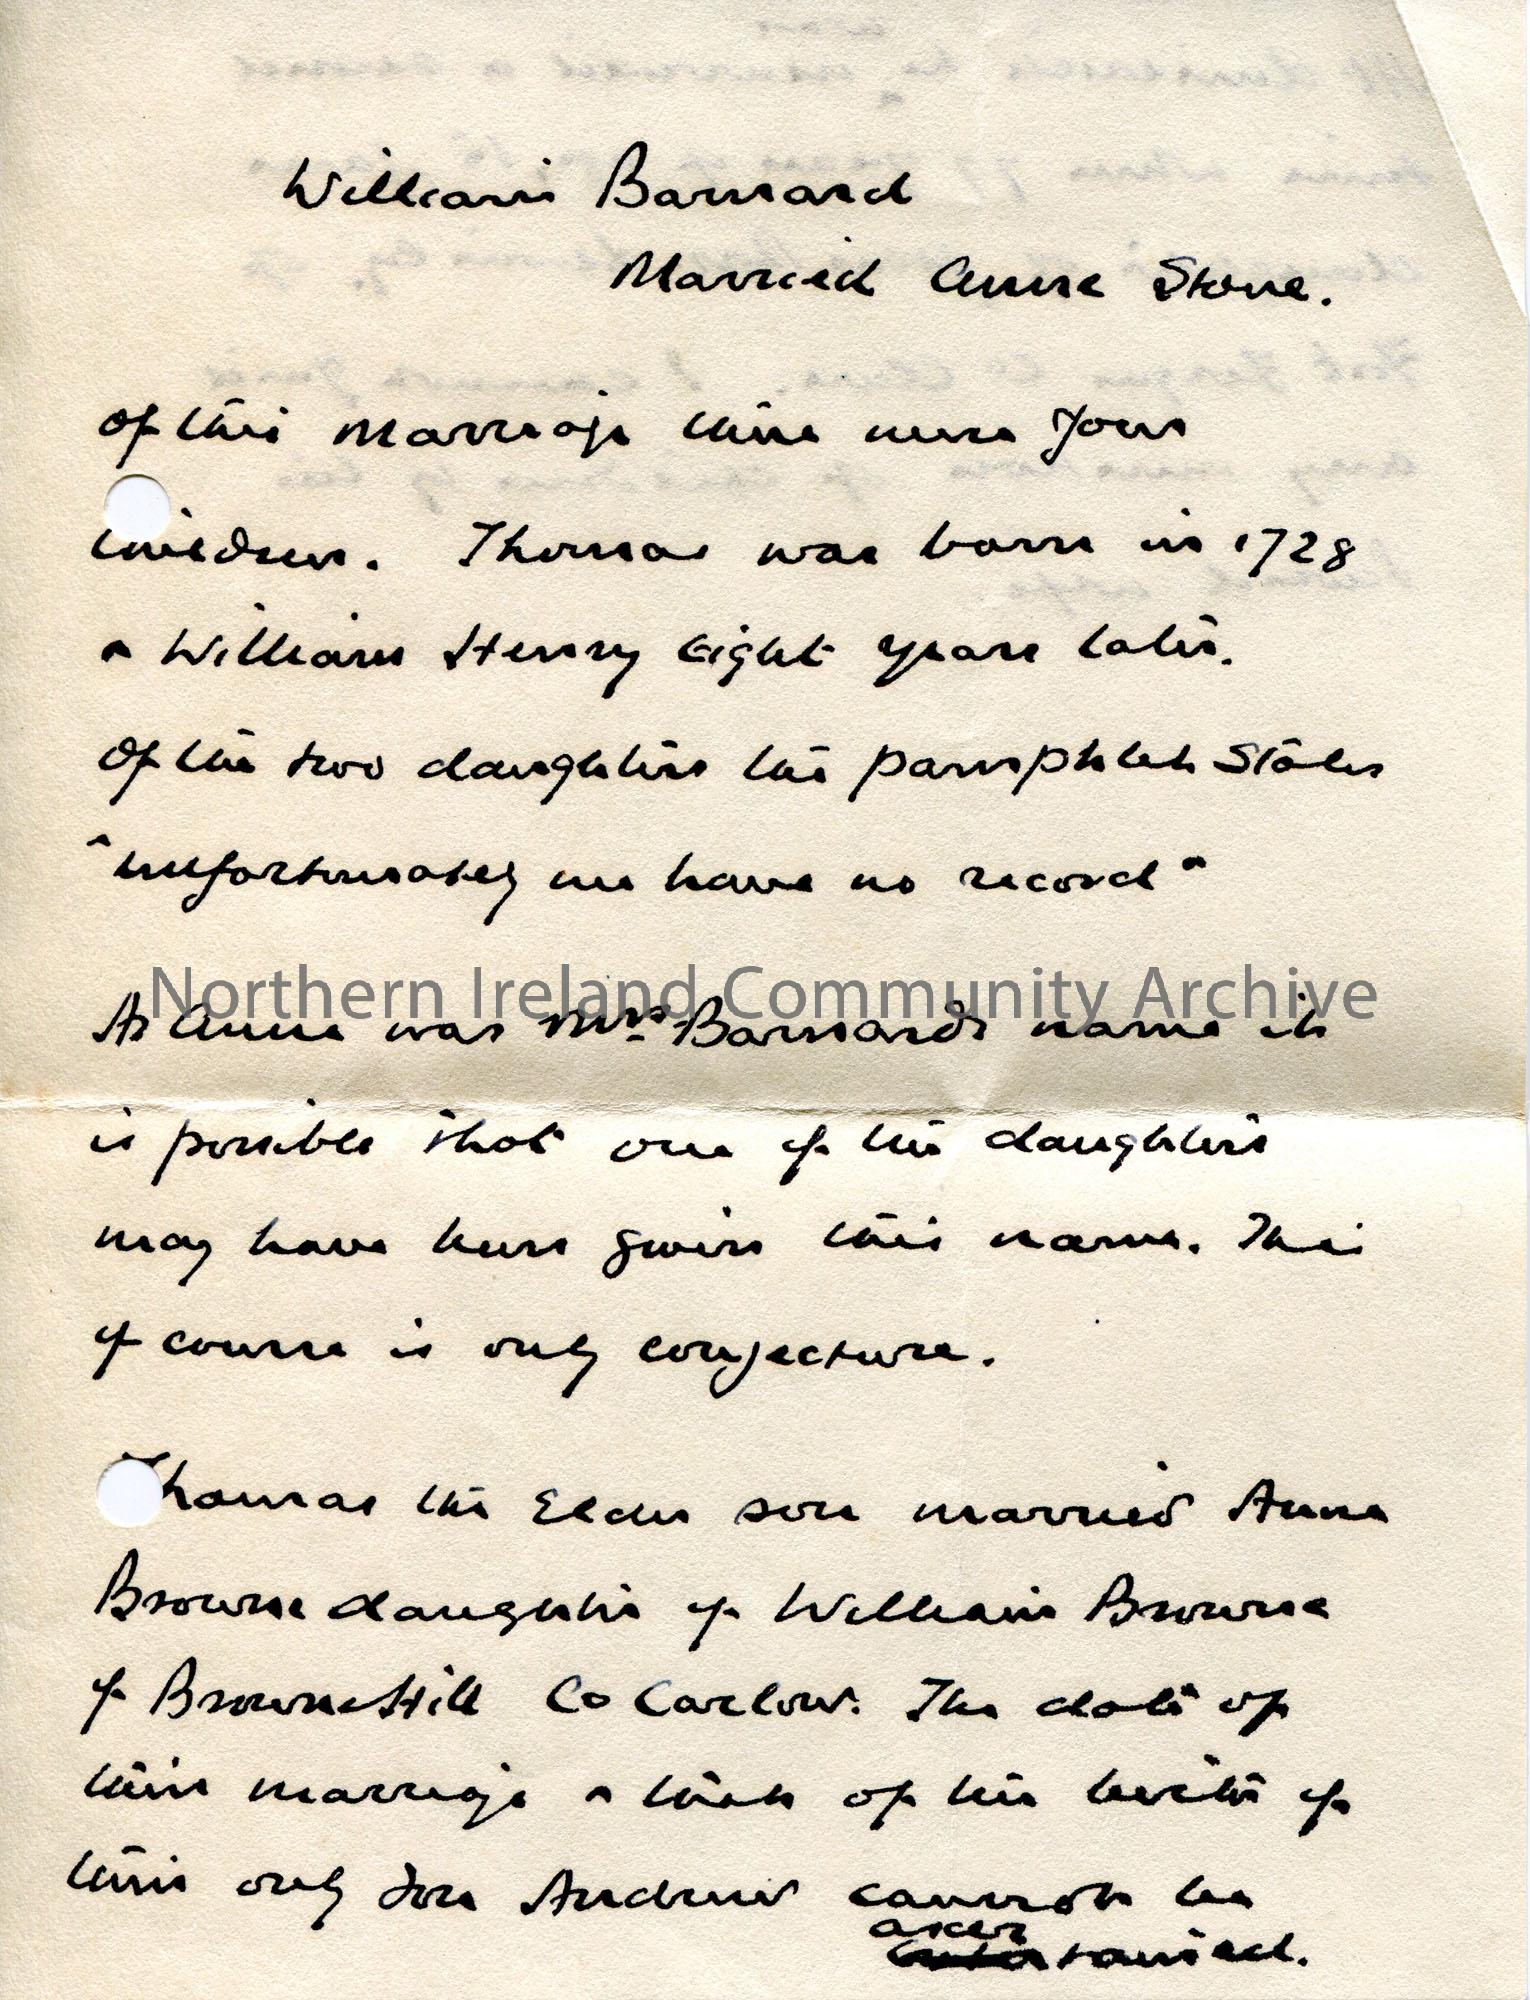 William Barnard
Married Anne Stone.
Of this Marriage there were Four
children. Thomas was born in 1728
& William Henry Eight years later.
Of the two daughters the pamphlet States
"unfortunately we have no record"
Northern Ireland Community Archive
As Anne was Mrs Barnards name it
is possible that one of the daughters
may have been given this name. This
of course is only conjecture.
Thomas the Elder son married Anne
Browne daughter of William Browne
of Browne Hill Co Carlow. The date of
their marriage & that of the birth of
their only son Andrew cannot be
ascer
tained.